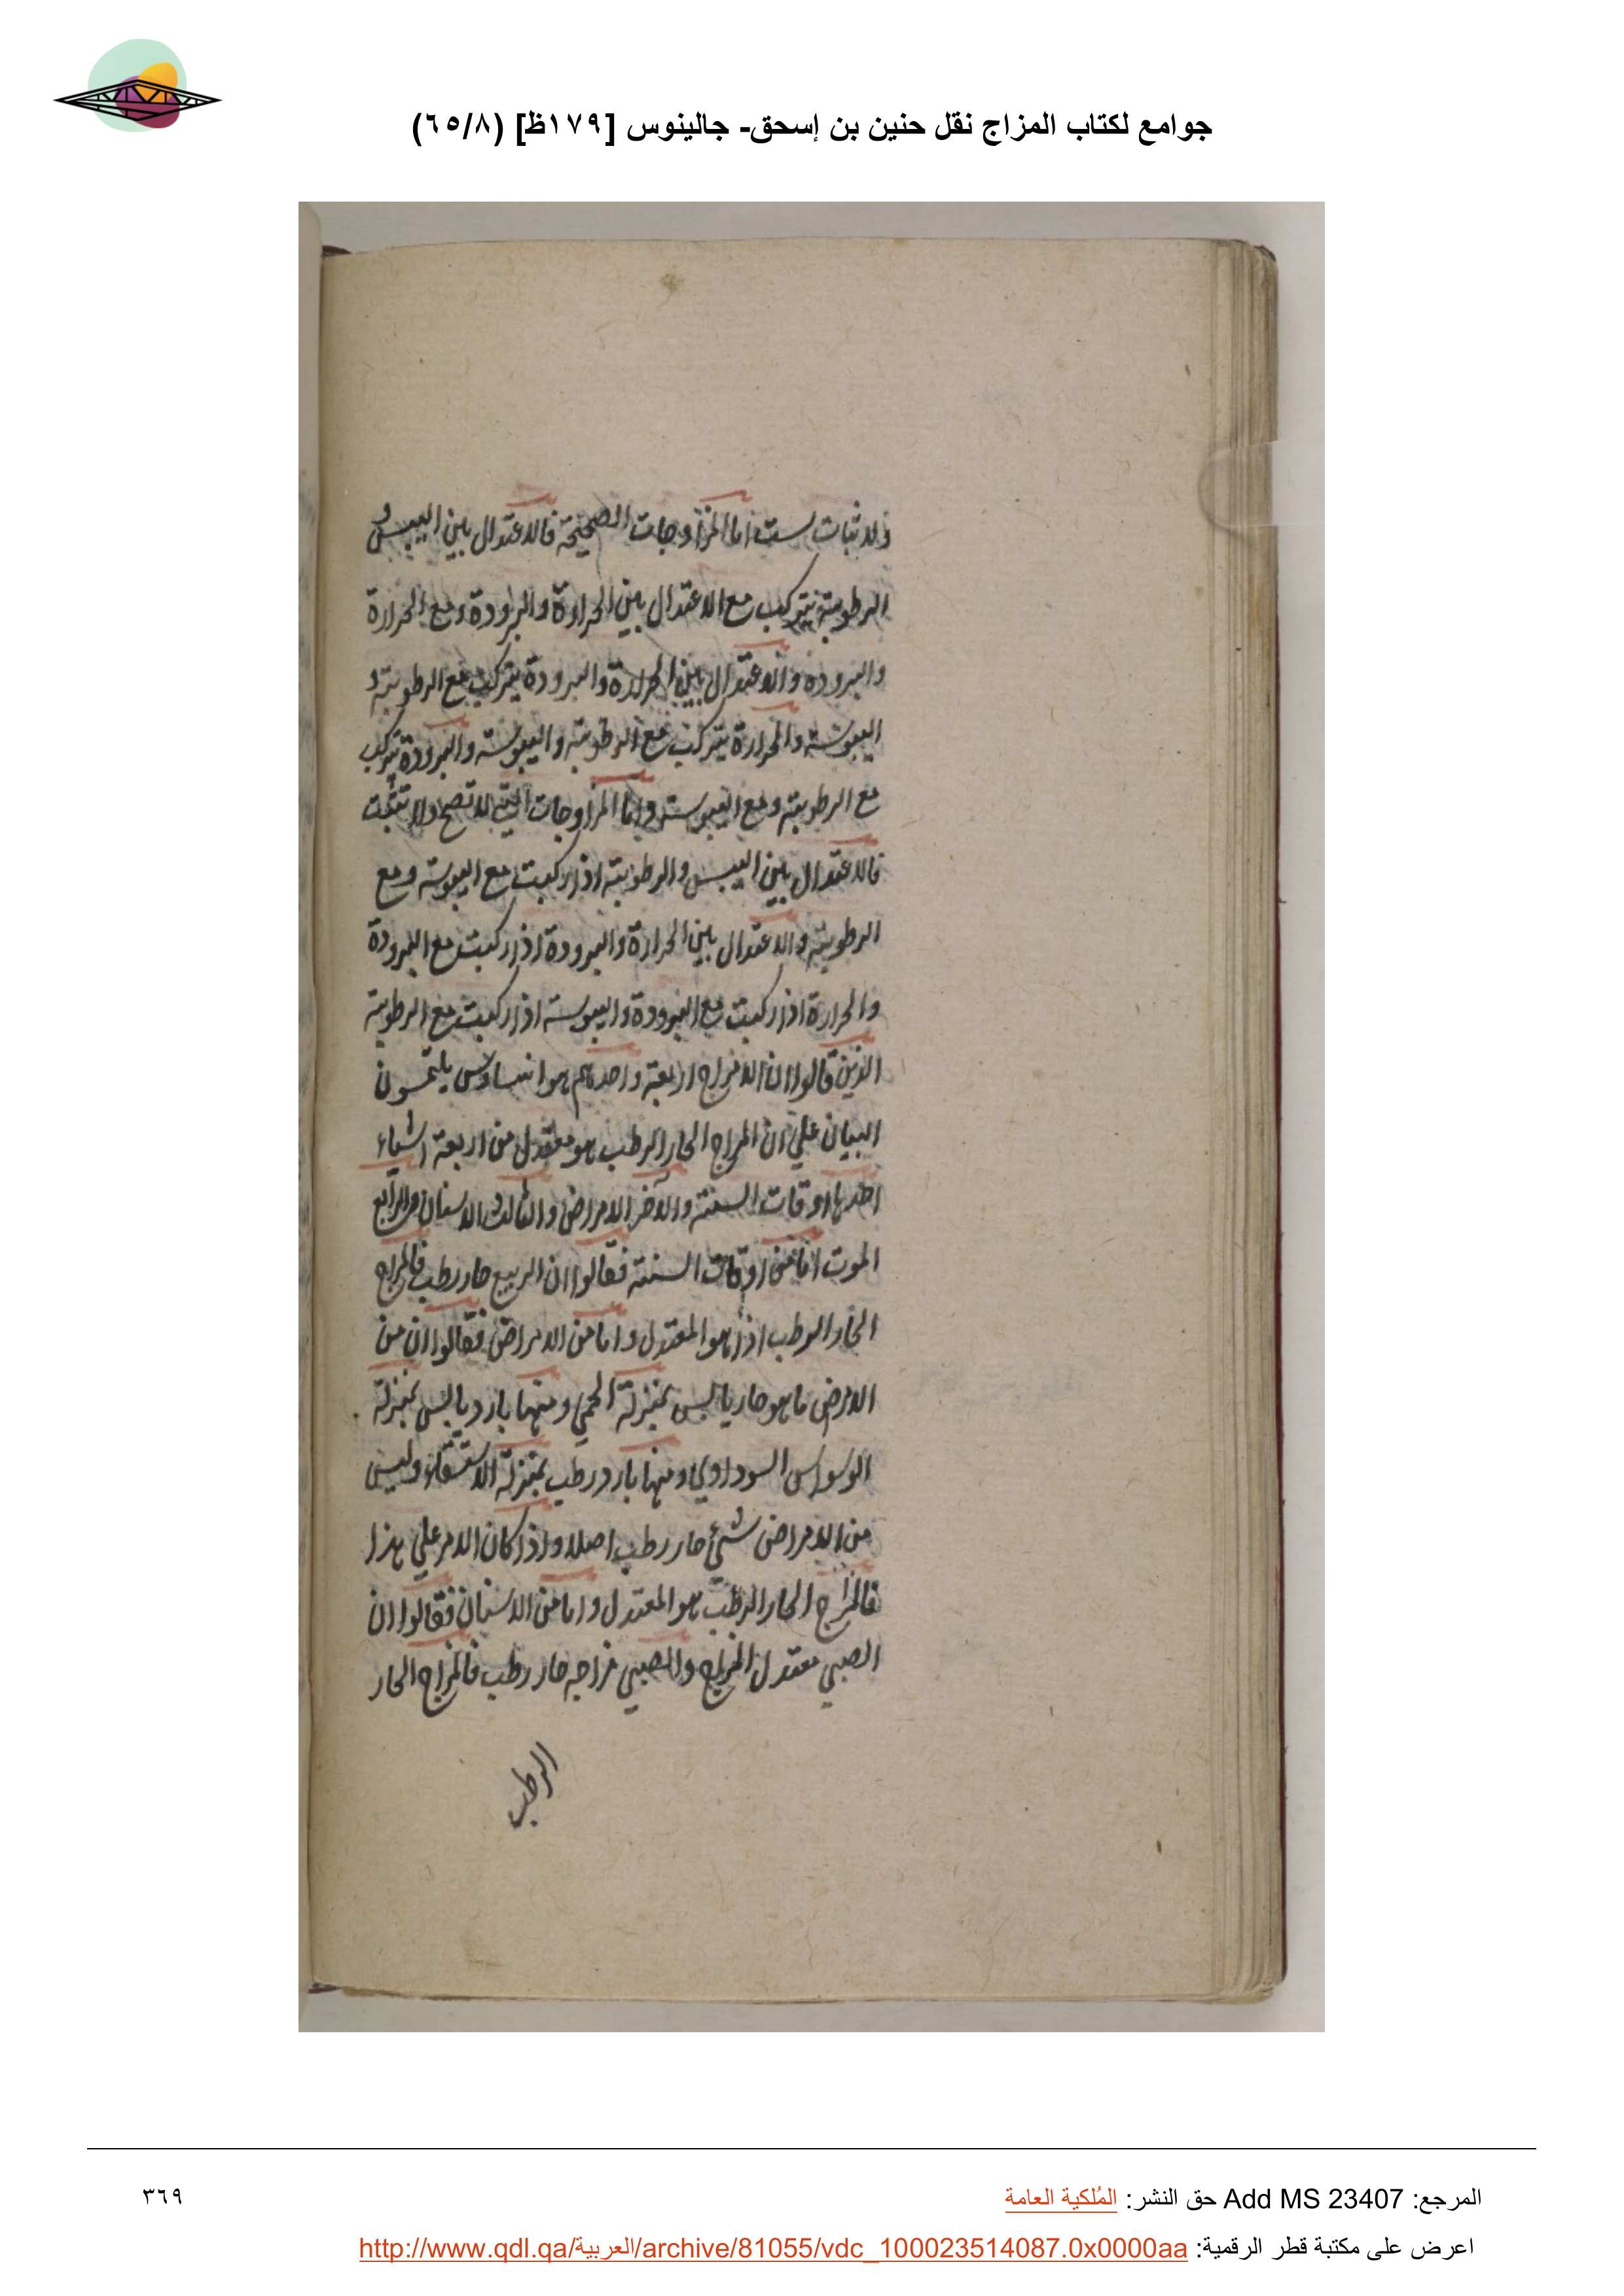 جوامع لكتاب المزاج نقل حنين بن إسحق- جالينوس [١٧٩ظ] (٦٥/٨)
ولا ثبات ست اما المزاوجات الصحيحة فالاعتدال بين اليبس و
الرطوبة يتركب مع الاعتدال بين الحرارة والبرودة ومع الحرارة
والبرودة والاعتدال بين الحرارة والبرودة يتركب مع الرطوبة و
اليبوسة والحرارة يتركب مع الرطوبة واليبوسة والبرودة يتركب
مع الرطوبة ومع اليبوسة واما المزاوجات التي لا تصح ولا تثبت
فالاعتدال بين اليبس والرطوبة اذا ركبت مع اليبوسة ومع
الرطوبة والاعتدال بين الحرارة والبرودة اذا ركبت مع البرودة
والحرارة اذا ركبت مع البرودة واليبوسة اذا ركبت مع الرطوبة
الذين قالوا ان الامزاج اربعة واحدهم هو يلتمسون
البيان علي ان المزاج الحار الرطب هو معتدل من اربعة اشياء
احدها اوقات السنة والآخر الامراض والثالث الاسنان والرابع
الموت اما من اوقات السنة فقالوا ان الربيع حار رطب فالمزاج
الحار الرطب اذا هو المعتدل واما من الامراض فقالوا ان من
الامرض ما هو حار يابس بمنزلة الحمي ومنها بارد يابس بمنزلة
الوسواس السوداوي ومنها بارد رطب بمنزلة الاستسقاء وليس
من الامراض شيء حار رطب اصلا واذا كان الامر علي هذا
فالمزاج الحار الرطب هو المعتدل واما من الاسنان فقالوا ان
الصبي معتدل المزاج والصبي مزاجه حار رطب فالمزاج الحار
الرطب
المرجع: Add MS 23407 حق النشر: المُلكية العامة
٣٦٩
اعرض على مكتبة قطر الرقمية: http://www.qdl.qa/العربية/archive/81055/vdc_100023514087.0x0000aa